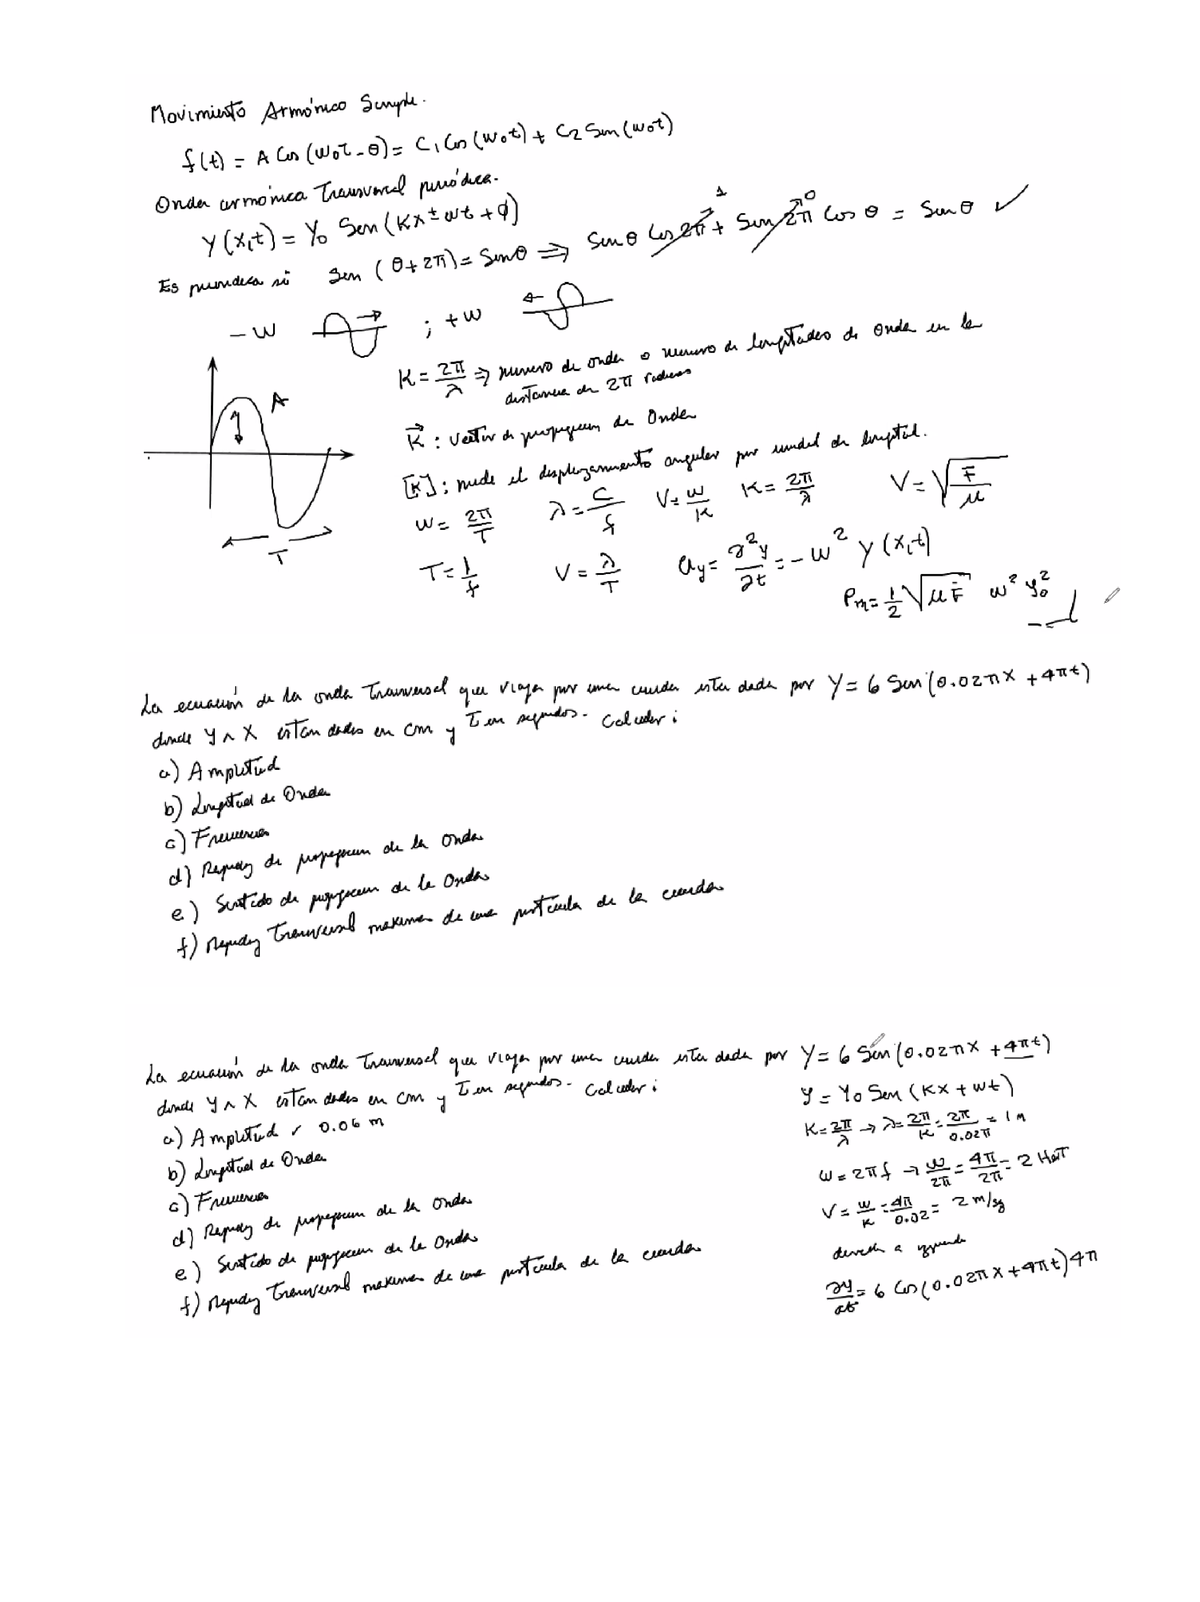 Movimiento Armónico Simple.
f(t) = A Cos(W₀t - θ) = C₁ Cos(W₀t) + C₂ Sen(W₀t)
Onda armónica Transversal periódica.
Y(x,t) = Y₀ Sen(Kx ± wt + φ)
Es periódica si Sen (θ+2π) = Senθ ⇒ Senθ Cos 2π + Sen 2π Cos θ = Senθ ✓
1 0
-W ; +W
A
T
K = 2π/λ ⇒ numero de onda o numero de longitudes de onda en la
distancia de 2π radianes
K⃗ : vector de propagación de Onda
[K] : mide el desplazamiento angular por unidad de longitud.
W = 2π/T λ = C/f V = W/K K = 2π/λ V = √(F/μ)
T = 1/f V = λ/T ay = ∂²y/∂t = -W² Y(x,t)
Pm = 1/2 √(μF) W² Y₀²
La ecuación de la onda Transversal que viaja por una cuerda esta dada por Y = 6 Sen(0.02πX + 4πt)
donde Y ∧ X estan dados en cm y t en segundos. Calcular:
a) Amplitud
b) Longitud de Onda
c) Frecuencia
d) Rapidez de propagación de la Onda
e) Sentido de propagación de la Onda
f) Rapidez Transversal maxima de una partícula de la cuerda
La ecuación de la onda Transversal que viaja por una cuerda esta dada por Y = 6 Sen(0.02πX + 4πt)
donde Y ∧ X estan dados en cm y t en segundos. Calcular:
a) Amplitud ✓ 0.06 m
b) Longitud de Onda
c) Frecuencia
d) Rapidez de propagación de la Onda
e) Sentido de propagación de la Onda
f) Rapidez Transversal maxima de una partícula de la cuerda
Y = Y₀ Sen (Kx + wt)
K = 2π/λ → λ = 2π/K = 2π/0.02π = 1 m
W = 2πf → W/2π = 4π/2π = 2 Hert
V = W/K = 4π/0.02 = 2 m/sg
derecha a izquierda
∂y/∂t = 6 Cos(0.02πX + 4πt) 4π